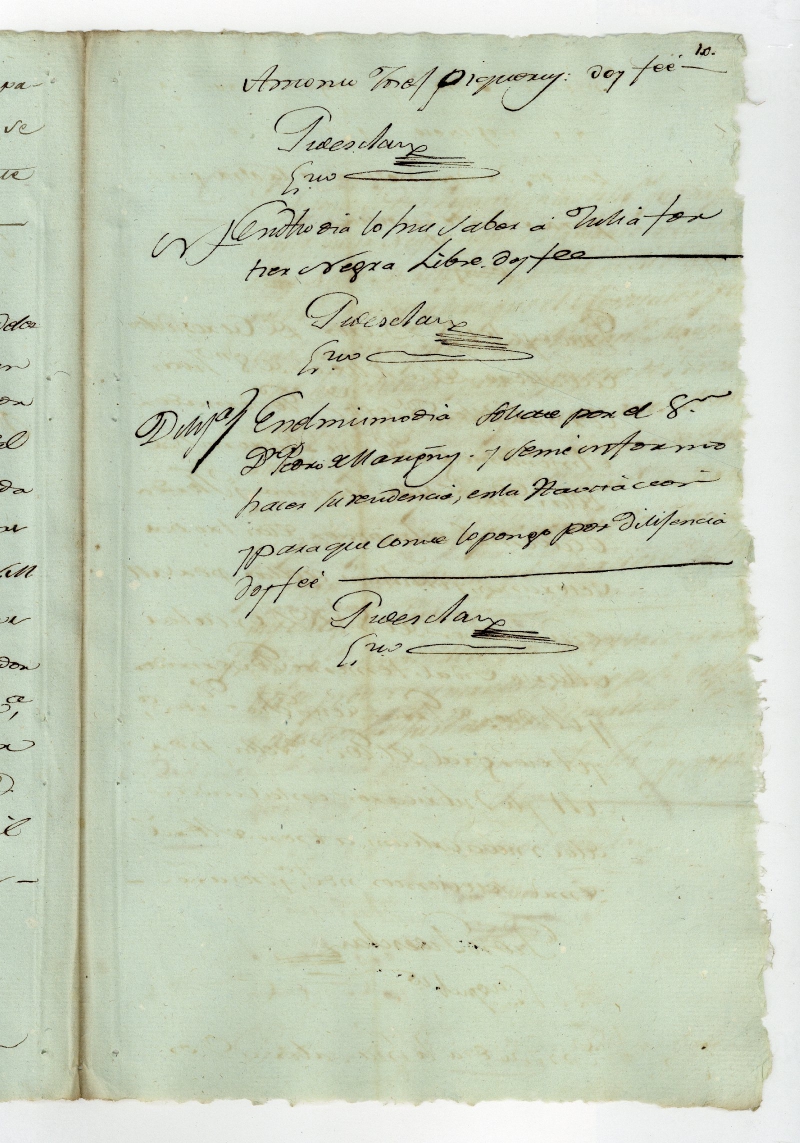 10.
Antonio Josef Piquery: doy feé
Pdesclaux
Esno
N En dho dia lo hise saber á Julia for
tier Negra Libre. doy fee
Pdesclaux
Esno
Dilig.a En el mismo dia solicite por el S.or
Dn Pedro de Marigny. y se me informo
hacer su residencia, en la
y para que conste lo pongo por diligencia
doy feé
Pdesclaux
Esno
se